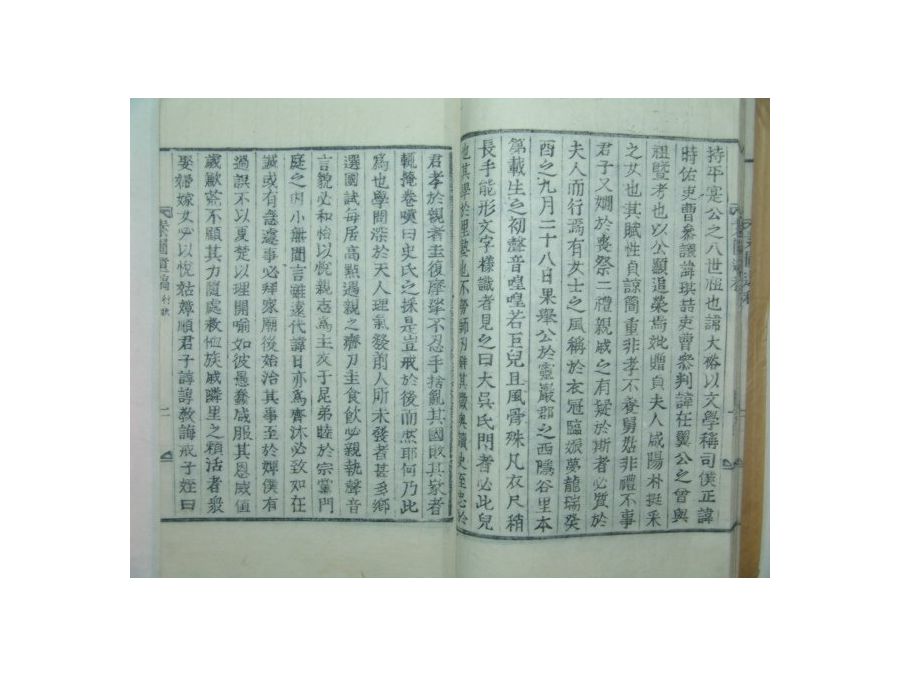 持平寔公之八世祖也諱大裕以文學稱司僕正諱
時佑吏曹參議諱琪喆吏曹參判諱在翼公之曾與
祖曁考也以公顯追榮焉妣贈貞夫人咸陽朴挺釆
之女也其賦性貞諒簡重非孝不養舅姑非禮不事
君子又嫺於喪祭二禮親戚之有疑於斯者必質於
夫人而行焉有女士之風稱於衣冠臨娠夢龍瑞癸
酉之九月二十八日果擧公於靈巖郡之西隱谷里本
第載生之初聲音喤喤若巨兒且風骨殊凡衣尺稍
長手能形文字樣識者見之曰大吳氏門者必此兒
也其學於里塾也不勞師而解其微奧讀史至忠於
君孝於親者圭復摩挲不忍手捨亂其國敗其家者
輒掩卷嘆曰史氏之採是豈戒於後而然耶何乃此
爲也學問深於天人理氣發前人所未發者甚多鄕
選國試每居高點過親之癠刀圭食飮必親執聲音
言貌必和怡以悅親志爲主友于昆弟睦於宗黨門
庭之內小無間言雖遠代諱日亦爲齊沐必致如在
誠或有急遽事必拜家廟後始治其事至於婢僕有
過誤不以夏楚以理開喻如彼愚蠢咸服其恩威値
歲歉荒不顧其力隨處救恤族戚隣里之賴活者衆
娶婦嫁女必以悅姑嫜順君子諄諄敎誨戒子姪曰
遺稿 附錄
二